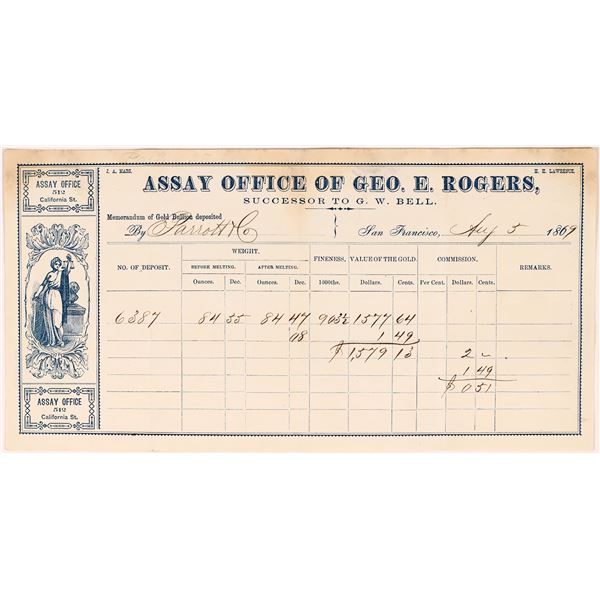 J. A. MARS.
H. H. LAWRENCE.
ASSAY OFFICE
512
California St.
ASSAY OFFICE OF GEO. E. ROGERS,
SUCCESSOR TO G. W. BELL.
Memorandum of Gold Bullion deposited
By Parrott & Co San Francisco, Aug 5 1869
NO. OF DEPOSIT. WEIGHT. FINENESS, VALUE OF THE GOLD. COMMISSION. REMARKS.
BEFORE MELTING. AFTER MELTING.
Ounces. Dec. Ounces. Dec. 1000ths. Dollars. Cents. Per Cent. Dollars. Cents.
6387 84 55 84 47 903½ 1577 64
08 1 49
$1,579 13 2 —
1 49
$0 51
ASSAY OFFICE
512
California St.